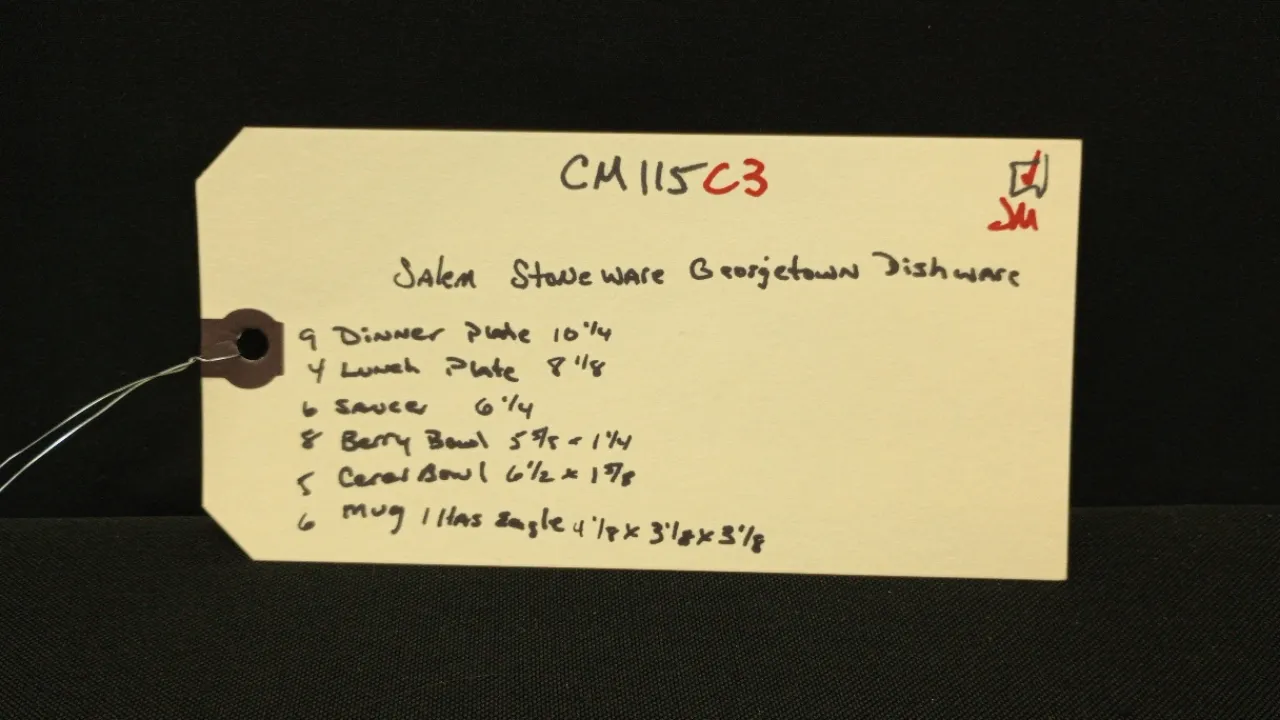 CM115C3
JM
Salem Stoneware Georgetown Dishware
9 Dinner Plate 10 1/4
4 Lunch Plate 8 1/8
6 Saucer 6 1/4
8 Berry Bowl 5 5/8 - 1 1/4
5 Cereal Bowl 6 1/2 x 1 5/8
6 Mug 1 Has Eagle 4 1/8 x 3 1/8 x 3 1/8